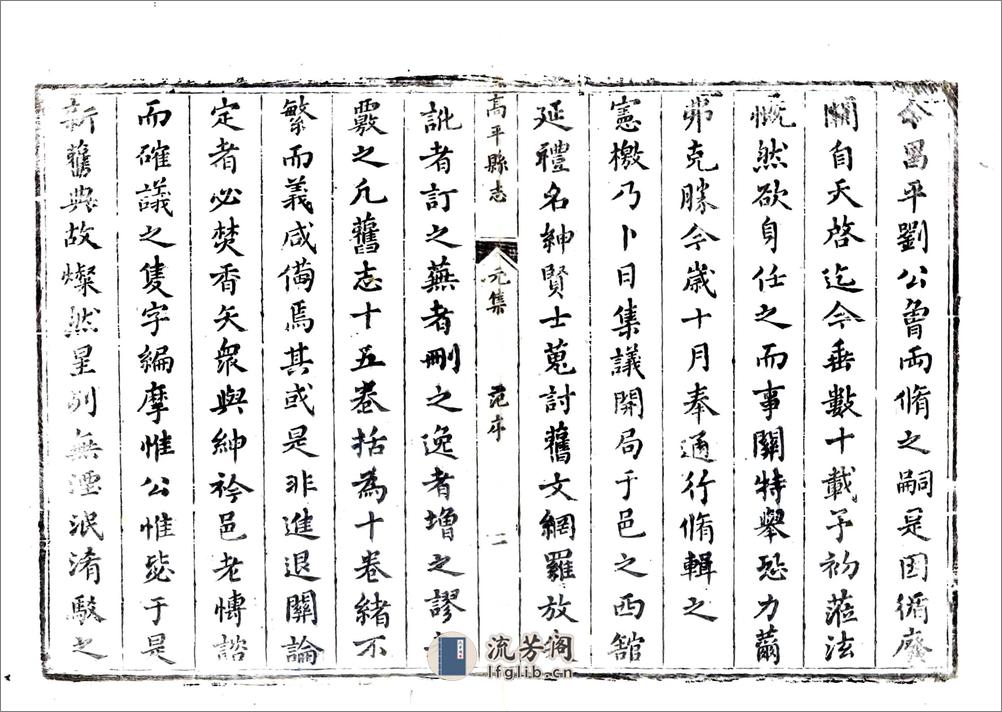 令昌平劉公魯両脩之嗣是因循廢
閣自天啓迄今垂數十載予初蒞法
慨然欲身任之而事關特舉恐力繭
弗克勝今歲十月奉通行脩輯之
憲檄乃卜日集議開局于邑之西舘
延禮名紳賢士蒐討舊文網羅放
高平縣志
元集
范序
二
訛者訂之蕪者刪之逸者增之謬
覈之凢舊志十五卷括為十卷緒不
繁而義咸備焉其或是非進退關論
定者必焚香矢衆與紳衿邑老慱諮
而確議之隻字編摩惟公惟毖于是
新舊典故燦然星列無湮泯淆駁之
流芳阁
lfglib.cn